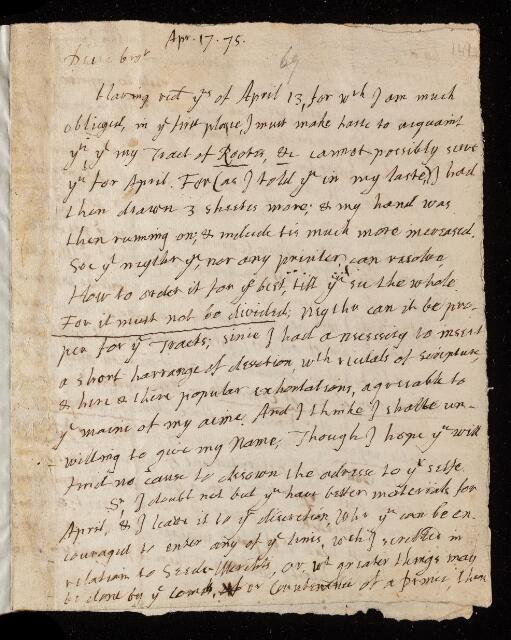 Apr. 17. 75.
69
Having recd yrs of April 13, for wch I am much
obliged, in ye first place, I must make haste to acquaint
yu yt my Tract of Roots, &c cannot possibly serve
yu for April. For (as I told yu in my laste) I had
then drawn 3 sheetes more; & my hand was
then running on; & indeede tis much more increased.
Soe yt neyther yu, nor any printer can resolve
How to order it for ye best, till yu see the whole
For it must not be divided; neyther can it be pro-
per for yr Tracts; since I had a necessity to insert
a short harrange of devotion, wth recitals of Scripture,
& here & there popular exhortations, agreeable to
ye maine of my aime. And I thinke I shalbe un-
willing to give my Name, Though I hope yu will
find no cause to disown the adresse to yr selfe.
Sr I doubt not but yu have better materials for
April, & I leave it to yr discretion, Who yu can be en
couraged to enter any of ye lines, wch I scribled in
relation to Seede-Merchts, or, wt greater things may
be done by ye or Countenance of a prince, then